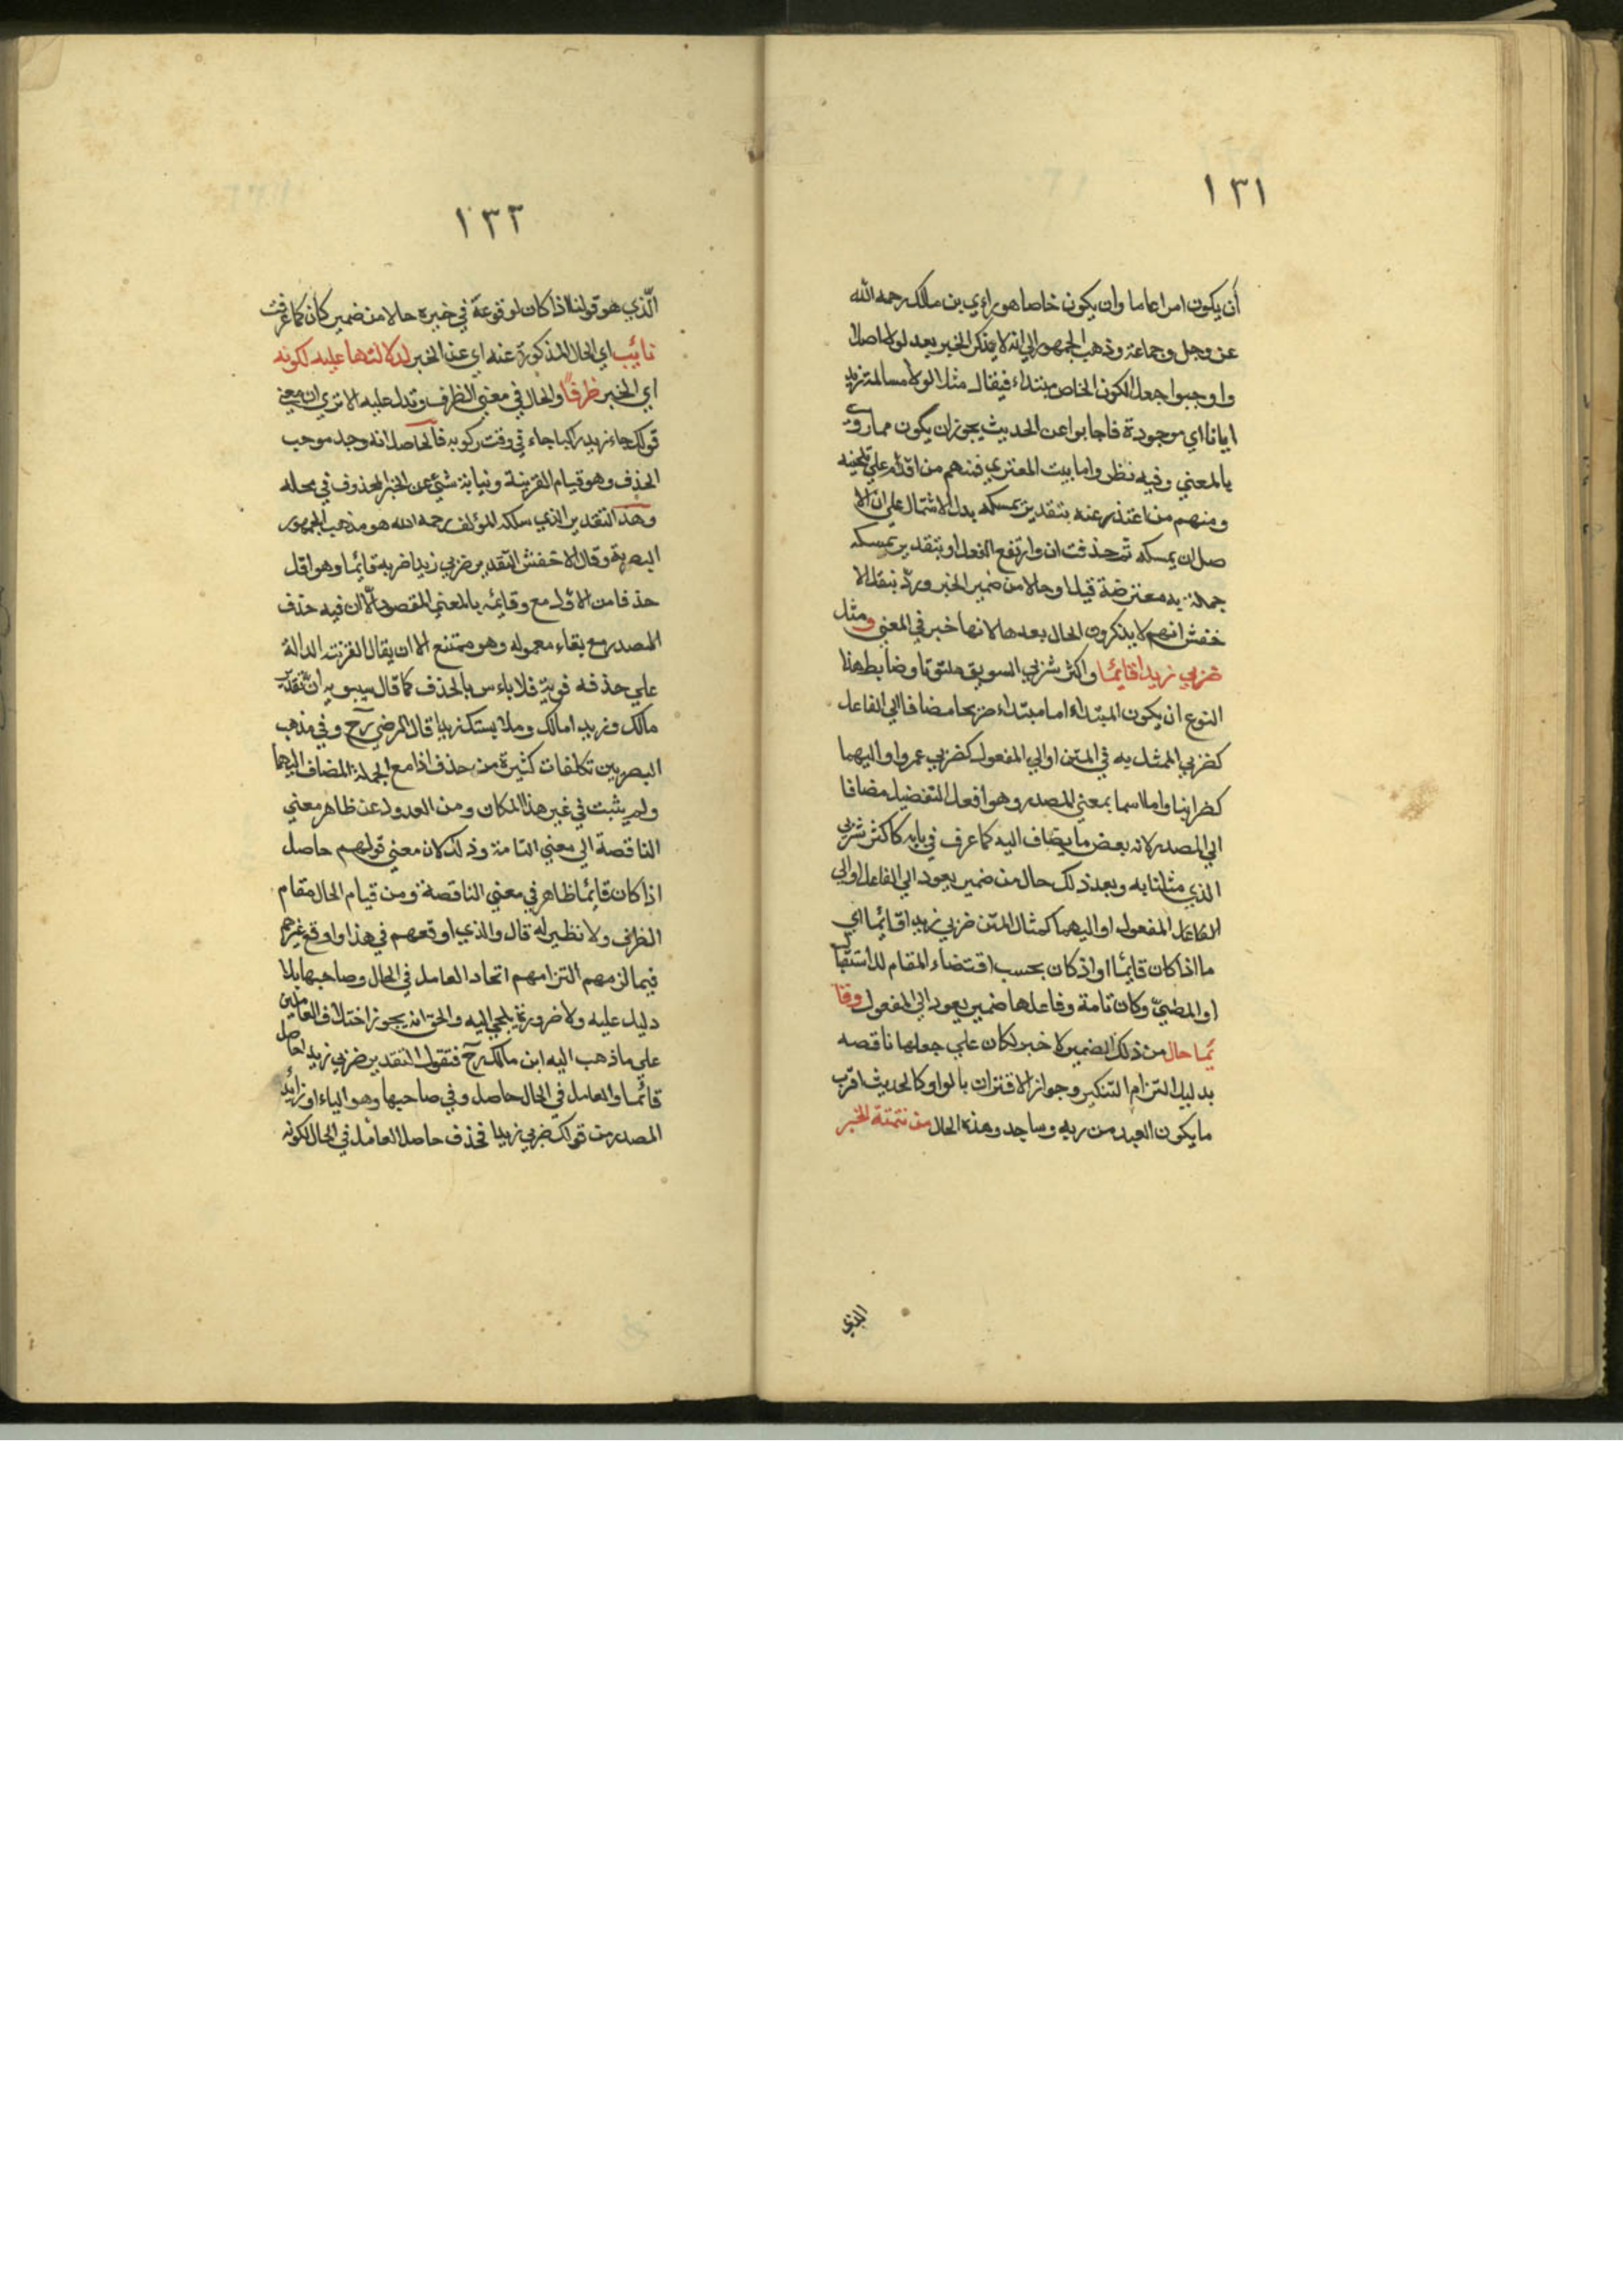 ١٣١
أن يكون امرا عاما وان يكون خاصا هو راءي بن مالك رحمه الله
عن وجل وجماعة وذهب الجمهور الي انه لا يذكر الخبر بعد لولا اصلا
واوجبوا جعل الكون الخاص مبتداء فيقال مثلا لولا مسالمة زيد
ايانا اي موجودة فاجابوا عن الحديث يجوز ان يكون مما روي
بالمعني وفيه نظر واما بيت المعتري فمنهم من اقدم علي تلحينه
ومنهم من اعتذر عنه بتقدير يمسكه بدل الاشتمال علي ان الا
صل ان يمسكه ثم حذفت ان وارتفع الفعل او بتقدير يمسكه
جملة به معترضة قيل او حالا من ضمير الخبر وردّ بنقل الا
خفش انهم لا يذكرون الحال بعدها لانها خبر في المعني ومثل
ضربي زيدا قايمًا واكثر شربي السويق ملتوتا وضابط هذا
النوع ان يكون المبتداء اما مبتداء صريحا مضافا الي الفاعل
كضربي الممثل به في المتن او الي المفعول كضربي عمروا او اليهما
كضرابنا واما اسما بمعني المصدر وهو افعل التفضيل مضافا
الي المصدر لانه بعض ما يضاف اليه كما عرف في بابه كاكثر شربي
الذي مثلنا به وبعد ذلك حال من ضمير يعود الي الفاعل او الي
الفاعل المفعول او اليهما كمثال المتن ضربي زيدا قائما اي
ما اذا كان قايما او اذ كان بحسب اقتضاء المقام للاستقبال
او المضيّ وكان تامة وفاعلها ضمير يعود الي المفعول وقا
ئما حال من ذلك الضمير لا خبر لكان علي جعلها ناقصه
بدليل التزام التنكير وجواز الاقتران بالواو كالحديث اقرب
ما يكون العبد من ربه وساجد وهذه الحال من تتمتة الخبر
الذي
١٣٢
الّذي هو قولنا اذا كان لوقوعة في خبره حالا من ضمير كان كما عرفت
نائب اي الحال المذكورة عنه اي عن الخبر لدلالتها عليه لكونه
اي الخبر ظرفًا والحال في معني الظرف وتدل عليه الا تري ان معني
قولك جاء زيد راكبا جاء في وقت ركوبه فالحاصل انه وجد موجب
الحذف وهو قيام القرينة ونيابة شيئ عن الخبر المحذوف في محله
وهذا التقدير الذي سلكه المؤلف رحمه الله هو مذهب الجمهور
البصرية وقال الاخفش التقدير ضربي زيدا ضربه قايما وهو اقل
حذفا من الاوّل مع وقايئه بالمعني المقصود الّا ان فيه حذف
المصدر مع بقاء معموله وهو ممتنع الا ان يقال القرينة الدالة
علي حذفه قوية فلا باءس بالحذف كما قال سيبويه ان تقدير
مالك وزيد امالك وملابستك زيدا قال الرضي رح وفي مذهب
البصريين تكلفات كثيرة من حذف اذا مع الجملة المضاف اليهما
ولم يثبت في غير هذا المكان ومن العدول عن ظاهر معني
الناقصة الي معني التامة وذلك لان معني قولهم حاصل
اذا كان قايمًا ظاهر في معني الناقصة ومن قيام الحال مقام
الظرف ولا نظير له قال والذي اوقعهم في هذا واوقع غيرهم
فيما لزمهم التزامهم اتحاد العامل في الحال وصاحبها بلا
دليل عليه ولا ضرورة يلجي اليه والحق انه يجوز اختلاف العاملين
علي ما ذهب اليه ابن مالك رح فتقول التقدير ضربي زيدا حاصل
قائما والعامل في الحال حاصل وفي صاحبها وهو الياء او زائد
المصدر من قولك ضربي زيدا فحذف حاصل العامل في الحال لكونه